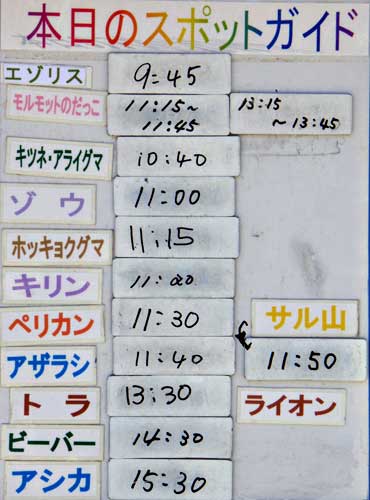 本日のスポットガイド
エゾリス 9:45
モルモットのだっこ 11:15~11:45 13:15~13:45
キツネ・アライグマ 10:40
ゾウ 11:00
ホッキョクグマ 11:15
キリン 11:20
ペリカン 11:30 サル山
アザラシ 11:40 11:50
トラ 13:30 ライオン
ビーバー 14:30
アシカ 15:30